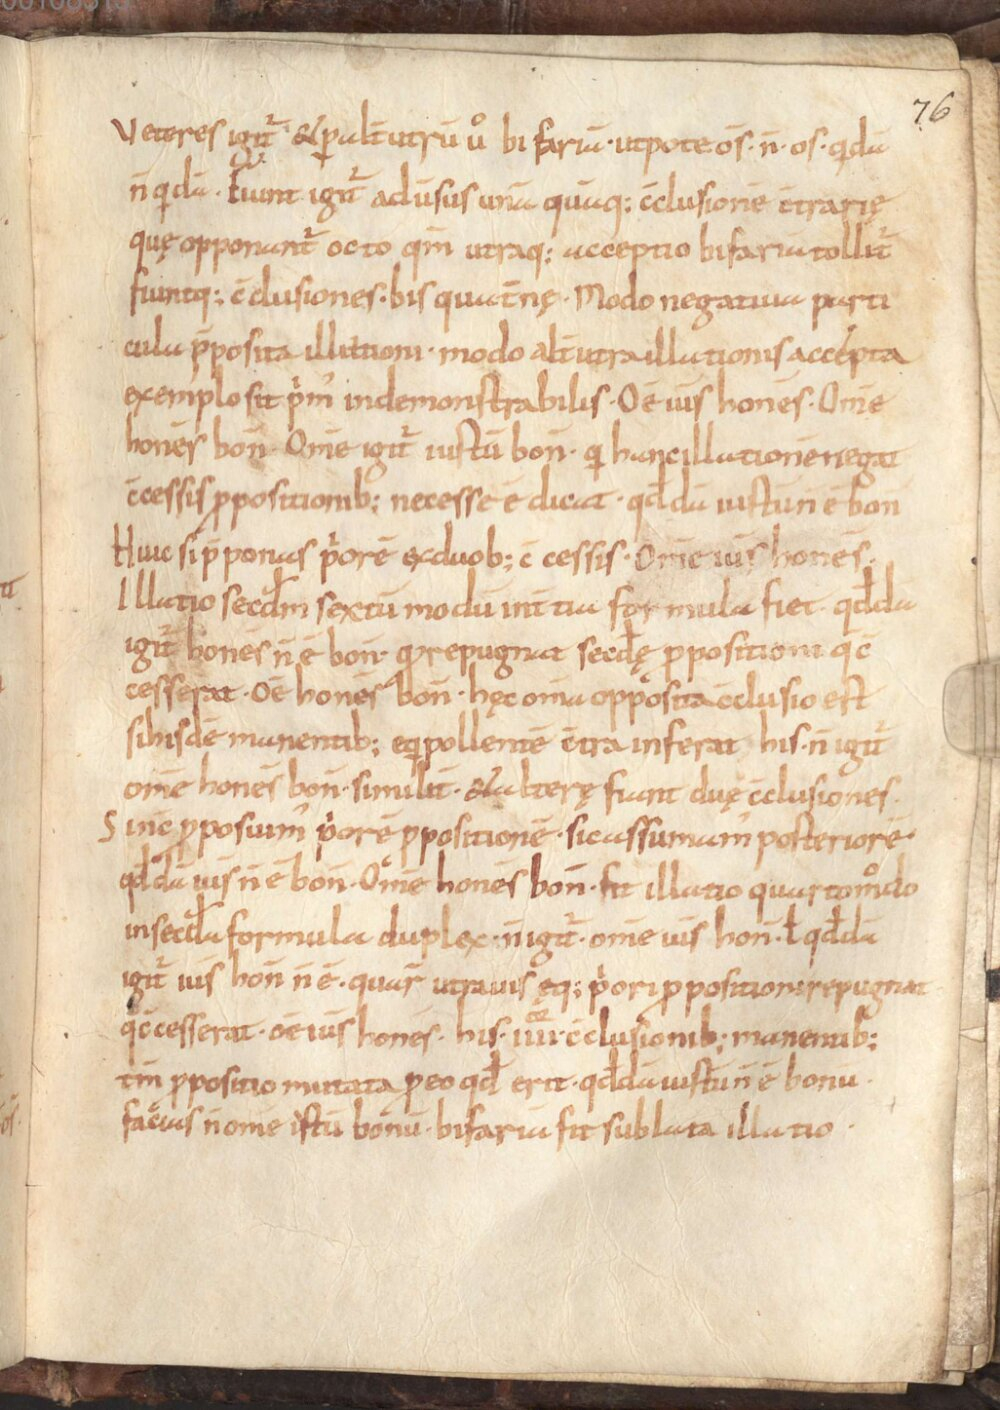 76
Veteres igit̄ et p alt̄utrū ů bifariā · utpote · ōs · n̄ · os · qdā
n̄ qdā · Fiunt igit̄ adūsus unā quāq; c̄clusionē c̄trarię
quę opponunt̄ octo qm̄ utraq; acceptio bifariā tollit̄
fiuntq; c̄clusiones · bis quat̄nę · Modo negatiua parti
cula p̄posita illationi · modo alt̄utra illationis accepta
exemplo sit p̄m indemonstrabilis · Oē iūs honēs · Om̄e
honēs bon̄ · Om̄e igit̄ iustū bon̄ · q hanc illationē negat
c̄cessis ppositionib; necesse ē dicat · qddā iustū n̄ ē bon̄
Huic si p̄ponas p̄orē ex duob; c̄cessis · Om̄e iūs honēs ·
Illatio secdm̄ sextū modū in t̄tia formula fiet · qddā
igit̄ honēs n̄ ē bon̄ · q repugnat secdę ppositioni q c̄
cesserat · Oē honēs bon̄ · hęc om̄ia opposita c̄clusio est
si hisdē manentib; eqpollentē c̄tra inferat his · n̄ igit̄
om̄e honēs bon̄ · similit̄ · et alterę fiunt duę c̄clusiones ·
Sin c̄ pposuim̄ p̄orē ppositionē · sic assumam̄ posteriorē ·
qddā iūs n̄ ē bon̄ · Om̄e honēs bon̄ · fit illatio quarto modo
in secda formula duplex · n̄ igit̄ · om̄e iūs hon̄ · ł qddā
igit̄ iūs hon̄ n̄ ē · quar̄ utrauis ęq; p̄ori ppositioni repugnat
q c̄cesserat · oē iūs honēs · his · iiii · c̄clusionib; manentib;
tm̄ ppositio mutata p eo qd erit · qddā iustū n̄ ē bonū ·
facias n̄ om̄e istū bonū · bifariā fit sublata illatio ·